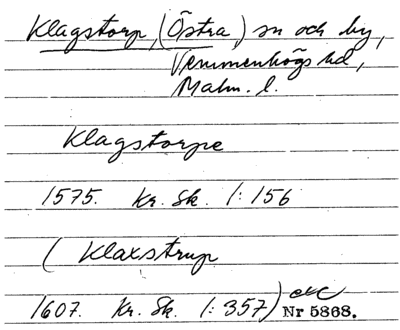 Klagstorp, (Östra) sn och by,
Vemmenhögs hd,
Malm. l.
Klagstorpe
1575. Kr. Sk. 1: 156
( Klaxstrup
1607. Kr. Sk. 1: 357)
Nr 5868.